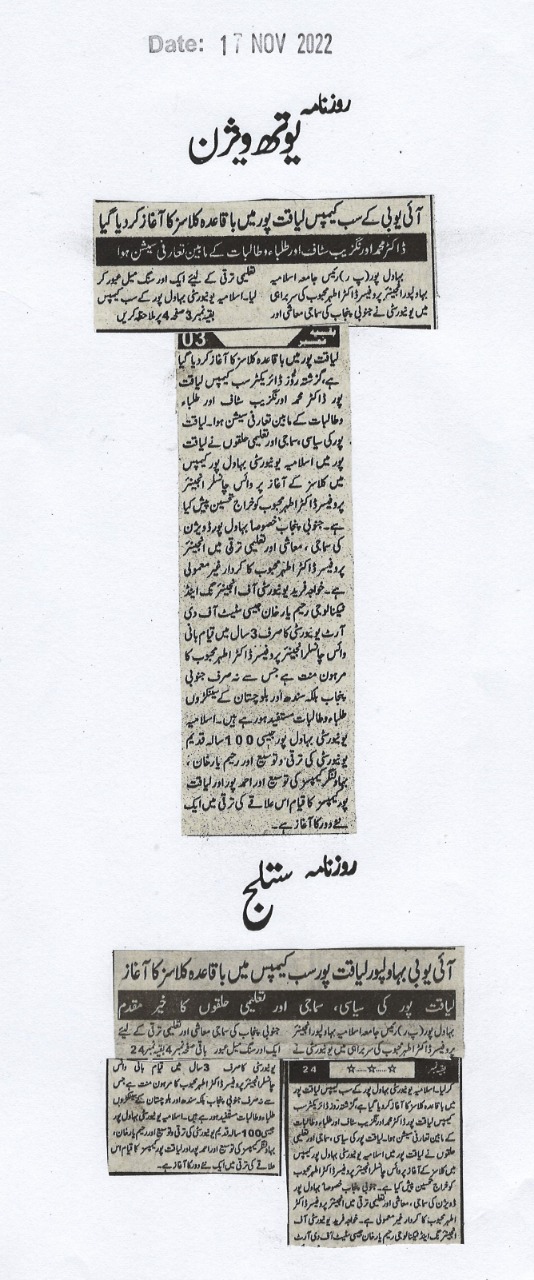 Date: 17 NOV 2022
روزنامہ
یوتھ ویژن
آئی یو بی کے سب کیمپس لیاقت پور میں باقاعدہ کلاسز کا آغاز کر دیا گیا
ڈاکٹر محمد اورنگزیب سٹاف اور طلباء و طالبات کے مابین تعارفی سیشن ہوا
بہاول پور (پ ر) رئیس جامعہ اسلامیہ
بہاولپور انجینئر پروفیسر ڈاکٹر اطہر محبوب کی سربراہی
میں یونیورسٹی نے جنوبی پنجاب کی سماجی معاشی اور
تعلیمی ترقی کے لیئے ایک اور سنگ میل عبور کر
لیا۔ اسلامیہ یونیورسٹی بہاول پور کے سب کیمپس
بقیہ نمبر 3 صفحہ 4 پر ملاحظہ کریں
بقیہ نمبر 03
لیاقت پور میں باقاعدہ کلاسز کا آغاز کر دیا گیا
ہے، گزشتہ روز ڈائریکٹر سب کیمپس لیاقت
پور ڈاکٹر محمد اورنگزیب سٹاف اور طلباء
و طالبات کے مابین تعارفی سیشن ہوا۔ لیاقت
پور کی سیاسی، سماجی اور تعلیمی حلقوں نے لیاقت
پور میں اسلامیہ یونیورسٹی بہاول پور کیمپس
میں کلاسز کے آغاز پر وائس چانسلر انجینئر
پروفیسر ڈاکٹر اطہر محبوب کو خراج تحسین پیش کیا
ہے۔ جنوبی پنجاب خصوصا بہاول پور ڈویژن
کی سماجی، معاشی اور تعلیمی ترقی میں انجینئر
پروفیسر ڈاکٹر اطہر محبوب کا کردار غیر معمولی
ہے۔ خواجہ فرید یونیورسٹی آف انجینئرنگ اینڈ
ٹیکنالوجی رحیم یار خان جیسی سٹیٹ آف دی
آرٹ یونیورسٹی کا صرف 3 سال میں قیام بانی
وائس چانسلر انجینئر پروفیسر ڈاکٹر اطہر محبوب کا
مرہون منت ہے جس سے نہ صرف جنوبی
پنجاب بلکہ سندھ اور بلوچستان کے سینکڑوں
طلباء و طالبات مستفید ہو رہے ہیں۔ اسلامیہ
یونیورسٹی بہاول پور جیسی 100 سالہ قدیم
یونیورسٹی کی ترقی و توسیع اور رحیم یار خان،
بہاولنگر کیمپسز کی توسیع اور احمد پور اور لیاقت
پور کیمپسز کا قیام اس علاقے کی ترقی میں ایک
نئے دور کا آغاز ہے۔
روزنامہ
ستلج
آئی یو بی بہاولپور لیاقت پور سب کیمپس میں باقاعدہ کلاسز کا آغاز
لیاقت پور کی سیاسی، سماجی اور تعلیمی حلقوں کا خیر مقدم
بہاول پور (پ ر) رئیس جامعہ اسلامیہ بہاولپور انجینئر
پروفیسر ڈاکٹر اطہر محبوب کی سربراہی میں یونیورسٹی نے
جنوبی پنجاب کی سماجی معاشی اور تعلیمی ترقی کے لیئے
ایک اور سنگ میل عبور باقی صفحہ نمبر 4 بقیہ نمبر 24
بقیہ نمبر 24
کر لیا۔ اسلامیہ یونیورسٹی بہاول پور کے سب کیمپس لیاقت پور
میں باقاعدہ کلاسز کا آغاز کر دیا گیا ہے، گزشتہ روز ڈائریکٹر سب
کیمپس لیاقت پور ڈاکٹر محمد اورنگزیب سٹاف اور طلباء و طالبات
کے مابین تعارفی سیشن ہوا۔ لیاقت پور کی سیاسی، سماجی اور تعلیمی
حلقوں نے لیاقت پور میں اسلامیہ یونیورسٹی بہاول پور کیمپس
میں کلاسز کے آغاز پر وائس چانسلر انجینئر پروفیسر ڈاکٹر اطہر محبوب
کو خراج تحسین پیش کیا ہے۔ جنوبی پنجاب خصوصا بہاول پور
ڈویژن کی سماجی، معاشی اور تعلیمی ترقی میں انجینئر پروفیسر ڈاکٹر
اطہر محبوب کا کردار غیر معمولی ہے۔ خواجہ فرید یونیورسٹی آف
انجینئرنگ اینڈ ٹیکنالوجی رحیم یار خان جیسی سٹیٹ آف دی آرٹ
یونیورسٹی کا صرف 3 سال میں قیام بانی وائس
چانسلر انجینئر پروفیسر ڈاکٹر اطہر محبوب کا مرہون منت ہے جس
سے نہ صرف جنوبی پنجاب بلکہ سندھ اور بلوچستان کے سینکڑوں
طلباء و طالبات مستفید ہو رہے ہیں۔ اسلامیہ یونیورسٹی بہاول پور
جیسی 100 سالہ قدیم یونیورسٹی کی ترقی و توسیع اور رحیم یار خان،
بہاولنگر کیمپسز کی توسیع اور احمد پور اور لیاقت پور کیمپسز کا قیام اس
علاقے کی ترقی میں ایک نئے دور کا آغاز ہے۔